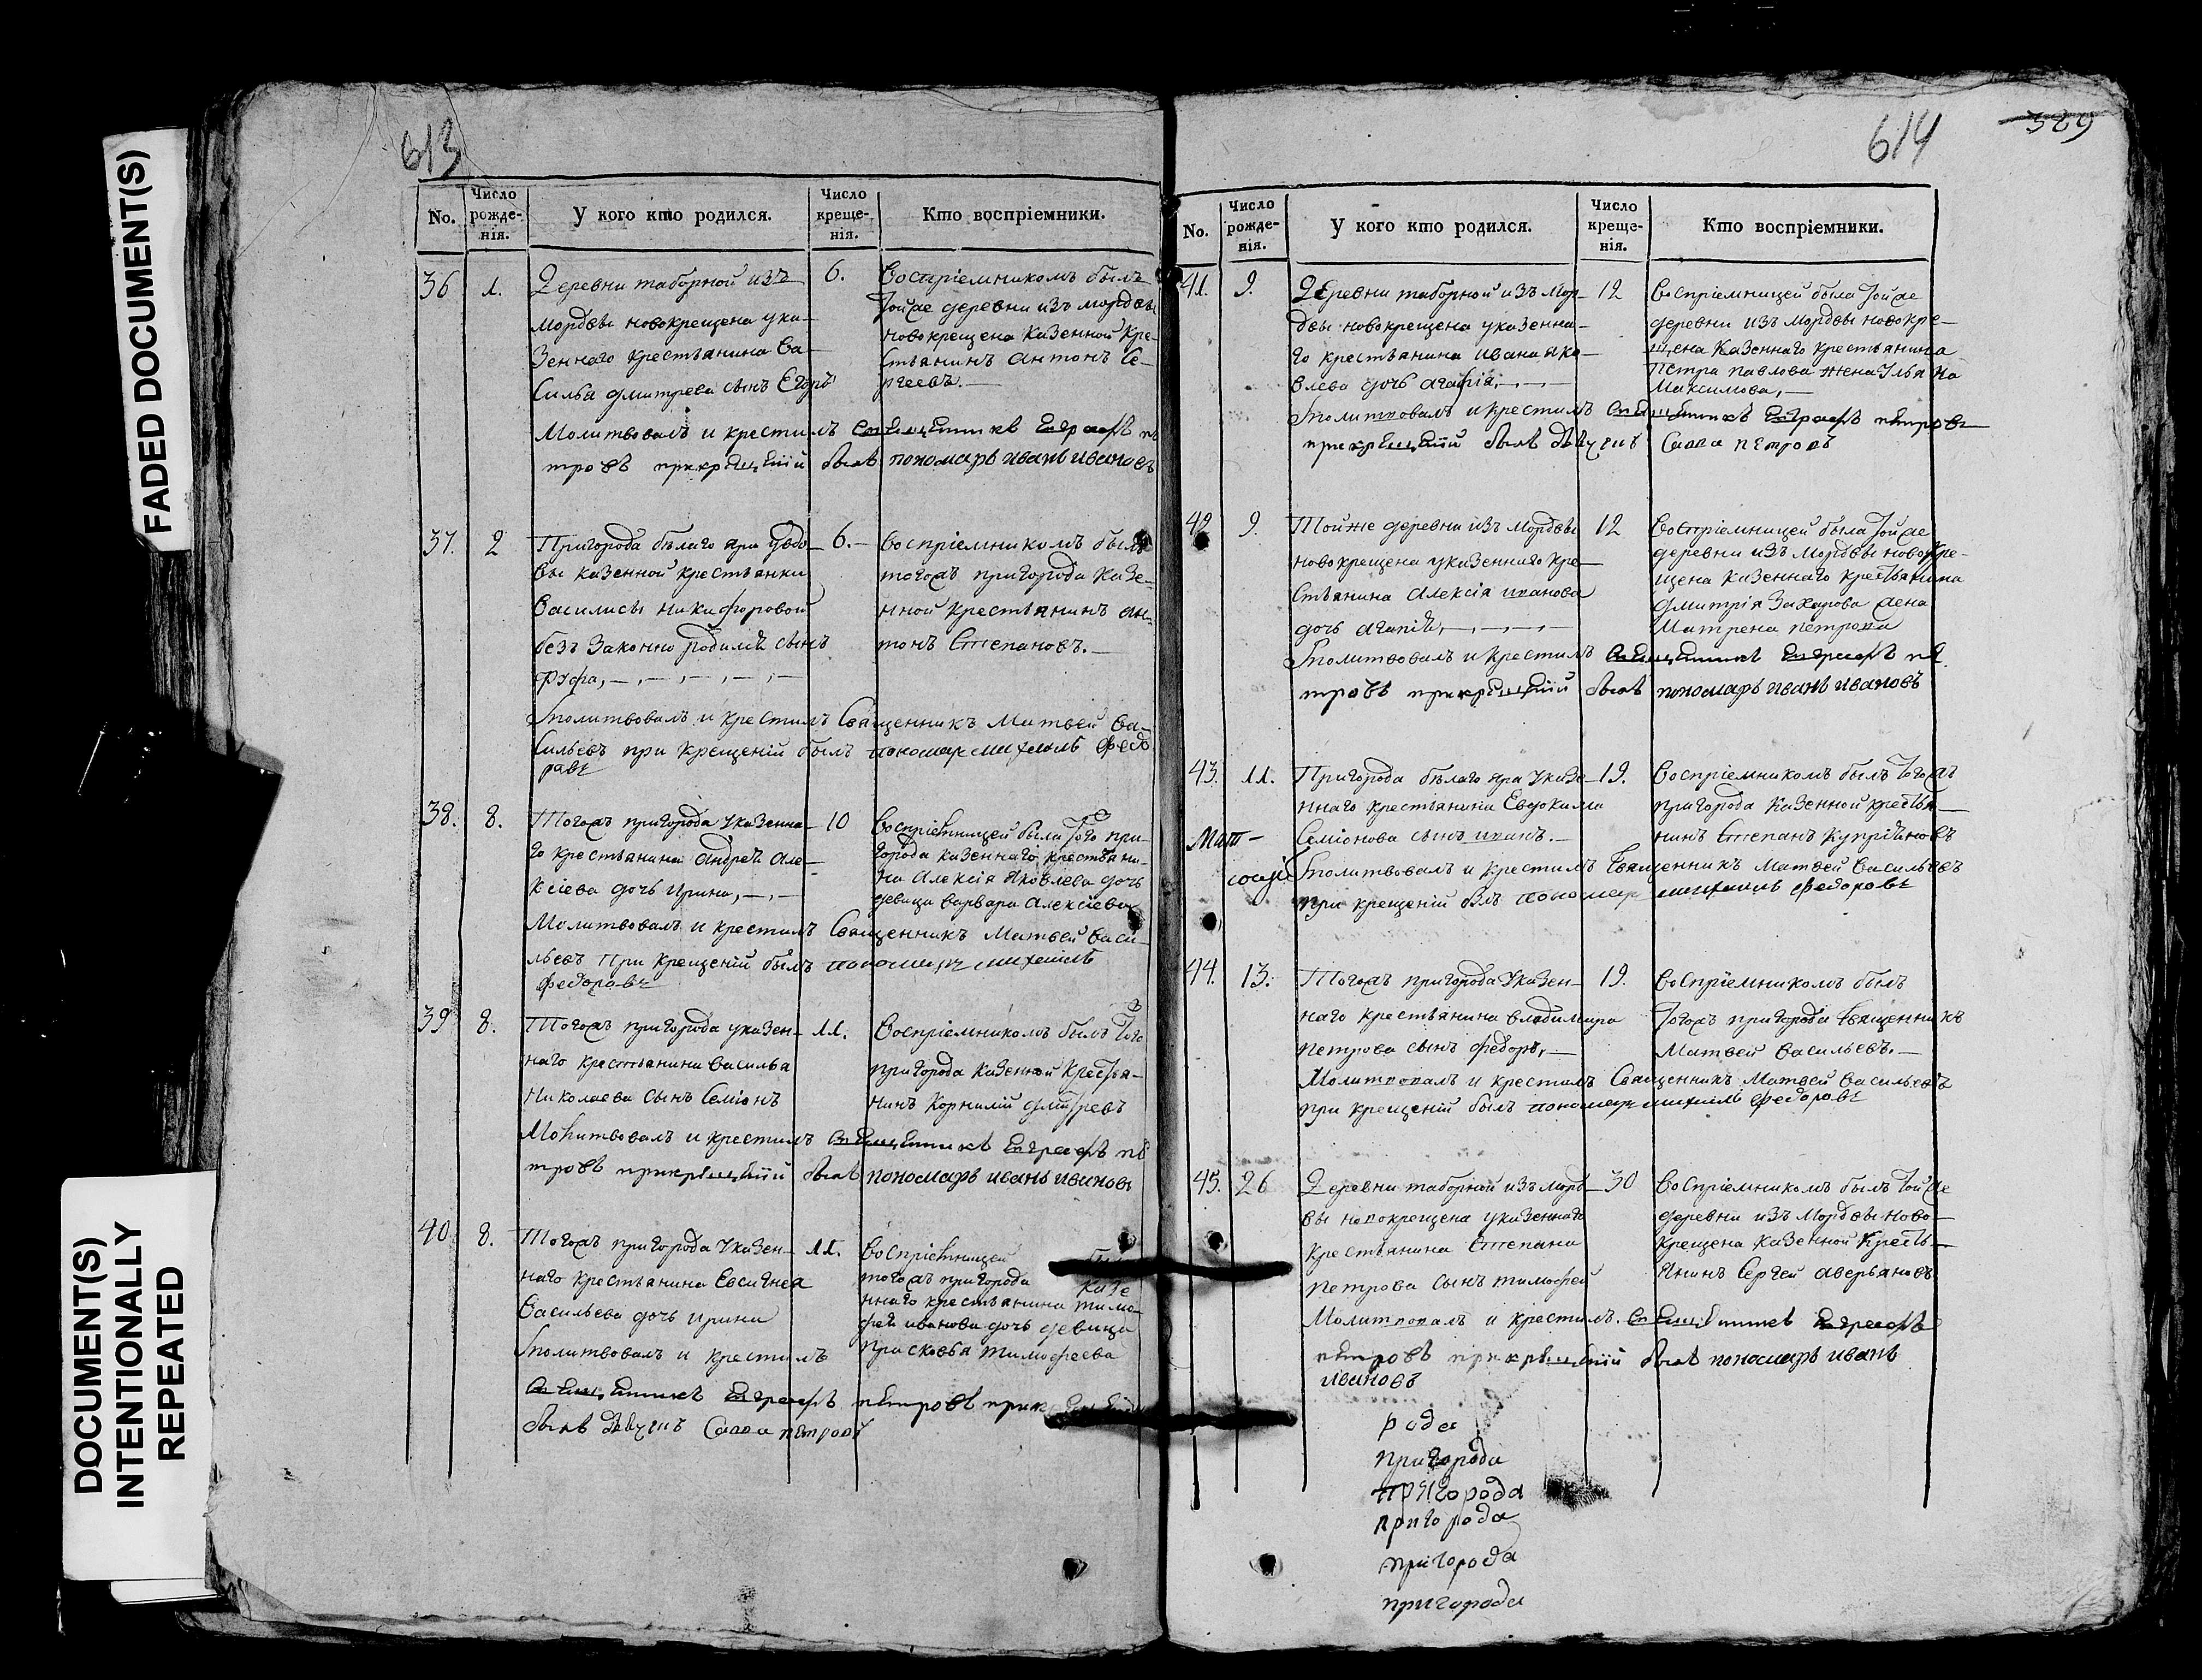 FADED DOCUMENT(S)
DOCUMENT(S)
INTENTIONALLY
REPEATED
613
No.
Число рожде- нія.
У кого кто родился.
Число креще- нія.
Кто воспріемники.
36 1. Деревни таборной изъ 6. Воспріемникомъ былъ
мордвы новокрещена ука-
зеннаго крестьянина Ва-
силья дмитрева сынъ Егоръ
тойже деревни изъ мордвы
новокрещена казенной кре-
стьянинъ антонъ Се-
ргеевъ.—
Молитвовалъ и крестилъ священникъ Евграфъ пе
тровъ прикрещеніи былъ пономарь иванъ ивановъ
37. 2 Пригорода бѣлаго яра у вдо- 6.— Воспріемникомъ былъ
вы казенной крестьянки
Василисы никифоровой
безъ законно родился сынъ
Руфа,—,—,—,—,—
тогожъ пригорода казе-
нной крестьянинъ ан-
тонъ Степановъ.—
молитвовалъ и крестилъ Священникъ Матвей Ва-
сильевъ при крещеніи былъ пономарь михаилъ федо
ровъ
38. 8. Тогожъ пригорода указенна- 10
го крестьянина андрея але-
ксіева дочь Ирина,—,—
Воспріемницей была того при-
города казеннаго крестьяни-
на Алексія Яковлева дочь
девица варвара Алексіева
Молитвовалъ и крестилъ Священникъ Матвей Васи-
льевъ при крещеніи былъ пономарь михаилъ
федоровъ
39 8. Тогожъ пригорода указен- 11. Воспріемникомъ былъ того
наго крестьянина василья
николаева сынъ Семіонъ
пригорода казенной крестья-
нинъ Корнилій дмитревъ
Молитвовалъ и крестилъ священникъ Евграфъ пе
тровъ прикрещеніи былъ пономарь иванъ ивановъ
40. 8. Тогожъ пригорода указен- 11. Воспріемницей
наго крестьянина Евсигнея
Васильева дочь ирина
тогожъ пригорода казе
ннаго крестьянина тимо-
фея иванова дочь девица
Прасковья тимофеева
молитвовалъ и крестилъ
священникъ Евграфъ петровъ
былъ дьячекъ Савва петровъ
614
389
No.
Число рожде- нія.
У кого кто родился.
Число креще- нія.
Кто воспріемники.
41. 9. Деревни таборной изъ мор- 12 Воспріемницей была тойже
двы новокрещена указенна-
го крестьянина ивана яко-
влева дочь агафія,—,—
деревни изъ мордвы новокре-
щена казеннаго крестьянина
петра павлова жена Ульяна
Максимова,—
молитвовалъ и крестилъ священникъ Евграфъ петровъ
прикрещеніи былъ дьячекъ Савва петровъ
42 9. Тойже деревни изъ мордвы 12 Воспріемницей была тойже
новокрещена указеннаго кре-
стьянина Алексія иванова
дочь агапія,—,—,—,—
деревни изъ мордвы новокре-
щена казеннаго крестьянина
дмитрія Захарова жена
Матрена петрова
молитвовалъ и крестилъ священникъ Евграфъ пе
тровъ прикрещеніи былъ пономарь иванъ ивановъ
43. 11. Пригорода бѣлаго яра указе- 19. Воспріемникомъ былъ тогожъ
ннаго крестьянина Евдокима
Семіонова сынъ иванъ.—
пригорода казенной крестья-
нинъ Степанъ Купріяновъ
молитвовалъ и крестилъ Священникъ Матвей Васильевъ
при крещеніи былъ пономарь михаилъ федоровъ
44. 13. Тогожъ пригорода указен- 19. Воспріемникомъ былъ
наго крестьянина владимира
петрова сынъ федоръ,—
тогожъ пригорода священникъ
Матвей васильевъ.—
Молитвовалъ и крестилъ Священникъ Матвей Васильевъ
при крещеніи былъ пономарь михаилъ федоровъ
45. 26 Деревни таборной изъ морд- 30 Воспріемникомъ былъ тойже
вы новокрещена указеннаго
крестьянина Степана
петрова сынъ тимофей
деревни изъ мордвы ново-
крещена казенной кресть-
янинъ Сергей аверьяновъ
Молитвовалъ и крестилъ. священникъ Евграфъ
петровъ прикрещеніи былъ пономарь иванъ
ивановъ
рода
пригорода
пригорода
пригорода
пригорода
пригорода